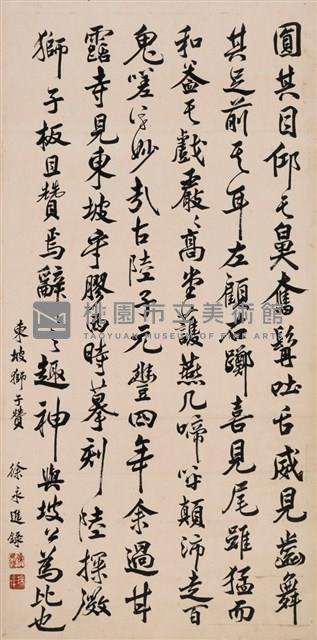 圓其目仰其鼻奮髯吐舌威見齒舞
其足前其耳左顧右躑喜見尾雖猛而
和蓋其戲嚴々高堂護燕几啼呼顛沛走百
鬼嗟乎妙哉古陸子元豐四年余過甘
露寺見東坡守膠時摹刻陸探微
獅子板且贊焉辭之趣神與坡公為比也
東坡獅子贊 徐永進錄
桃園市立美術館
TAOYUAN MUSEUM OF FINE ARTS